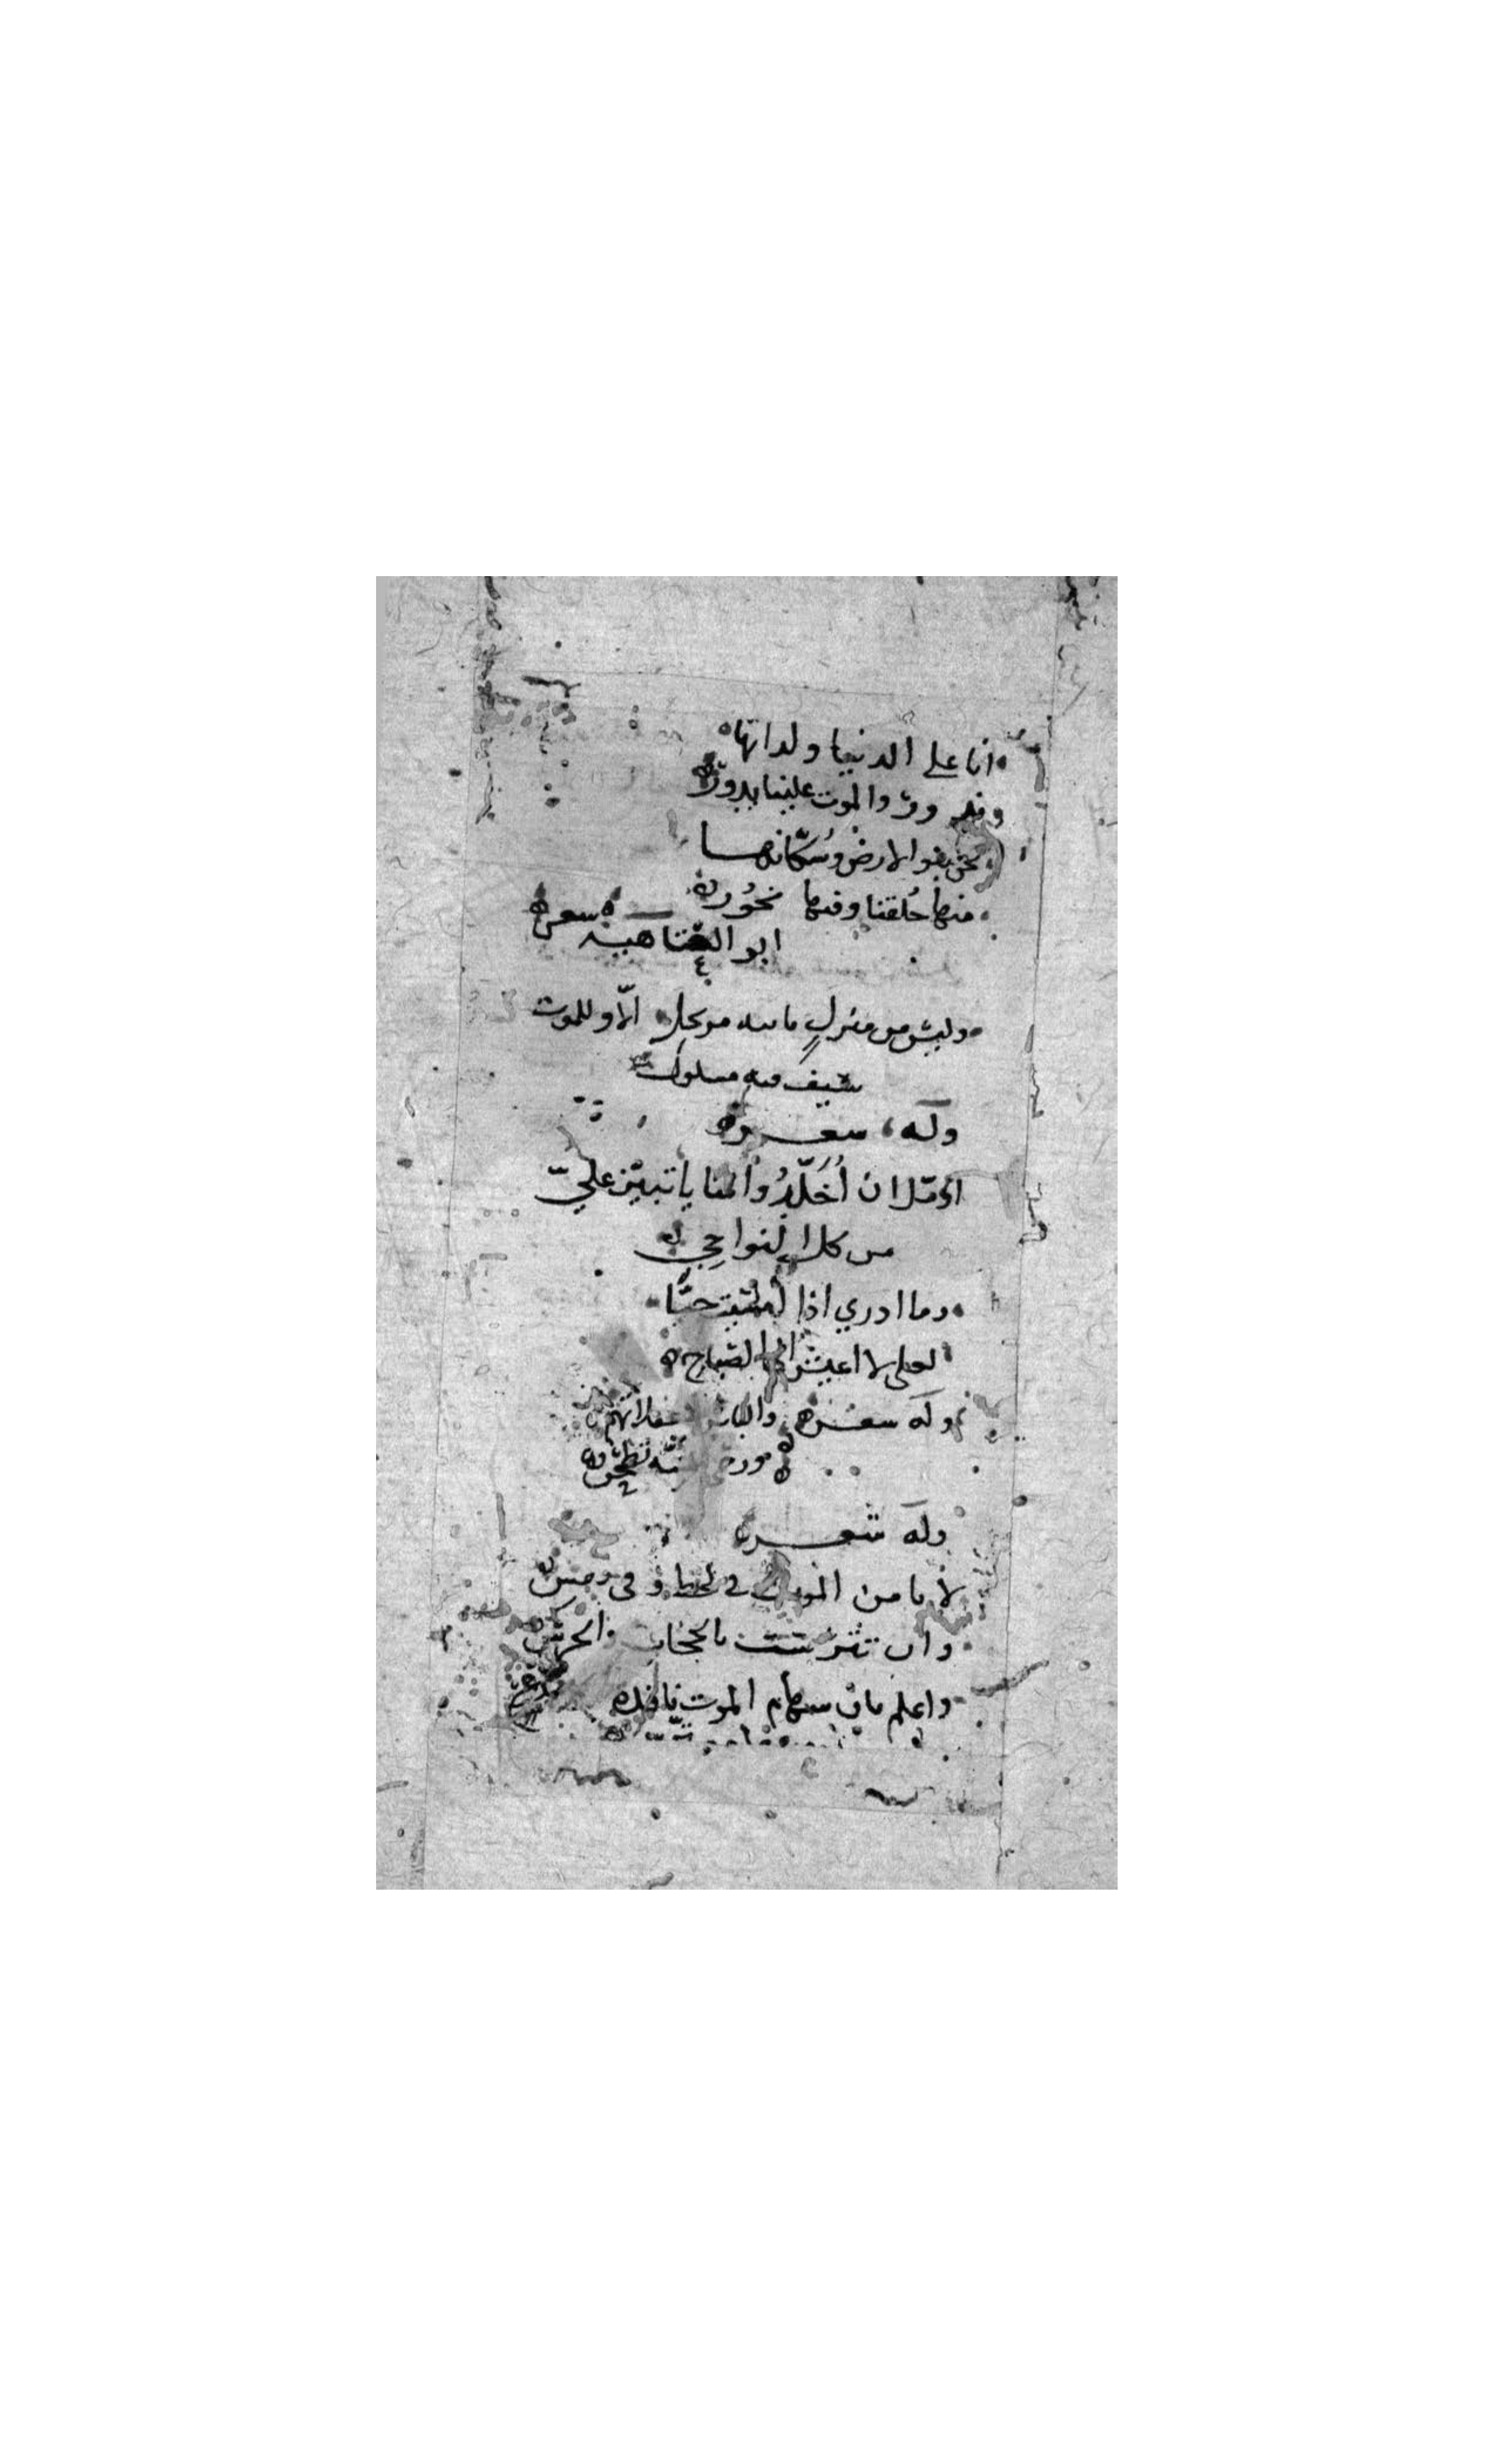 انا على الدنيا ولداتها
والموت علينا يدور
نحن بنو الارض وسُكّانها
منها خُلقنا وفيها نحُور
ابو العتاهية شعر
وليس من منزل ياتيه مرتحل الّا وللموت
سيف فيه مسلول
وله شعر
اؤمّل ان أُخَلّدُ والمنايا تبين عليّ
من كل النواحي
وما ادري اذا امسيت حيّا
لعلى لا اعيش الى الصباح
وله شعر والناس غفلاتهم
ورحى تطحن
وله شعر
لا تامن الموت في لحظ وفى نفس
وان تترست بالحجاب والحرس
واعلم بان سهام الموت نافذه